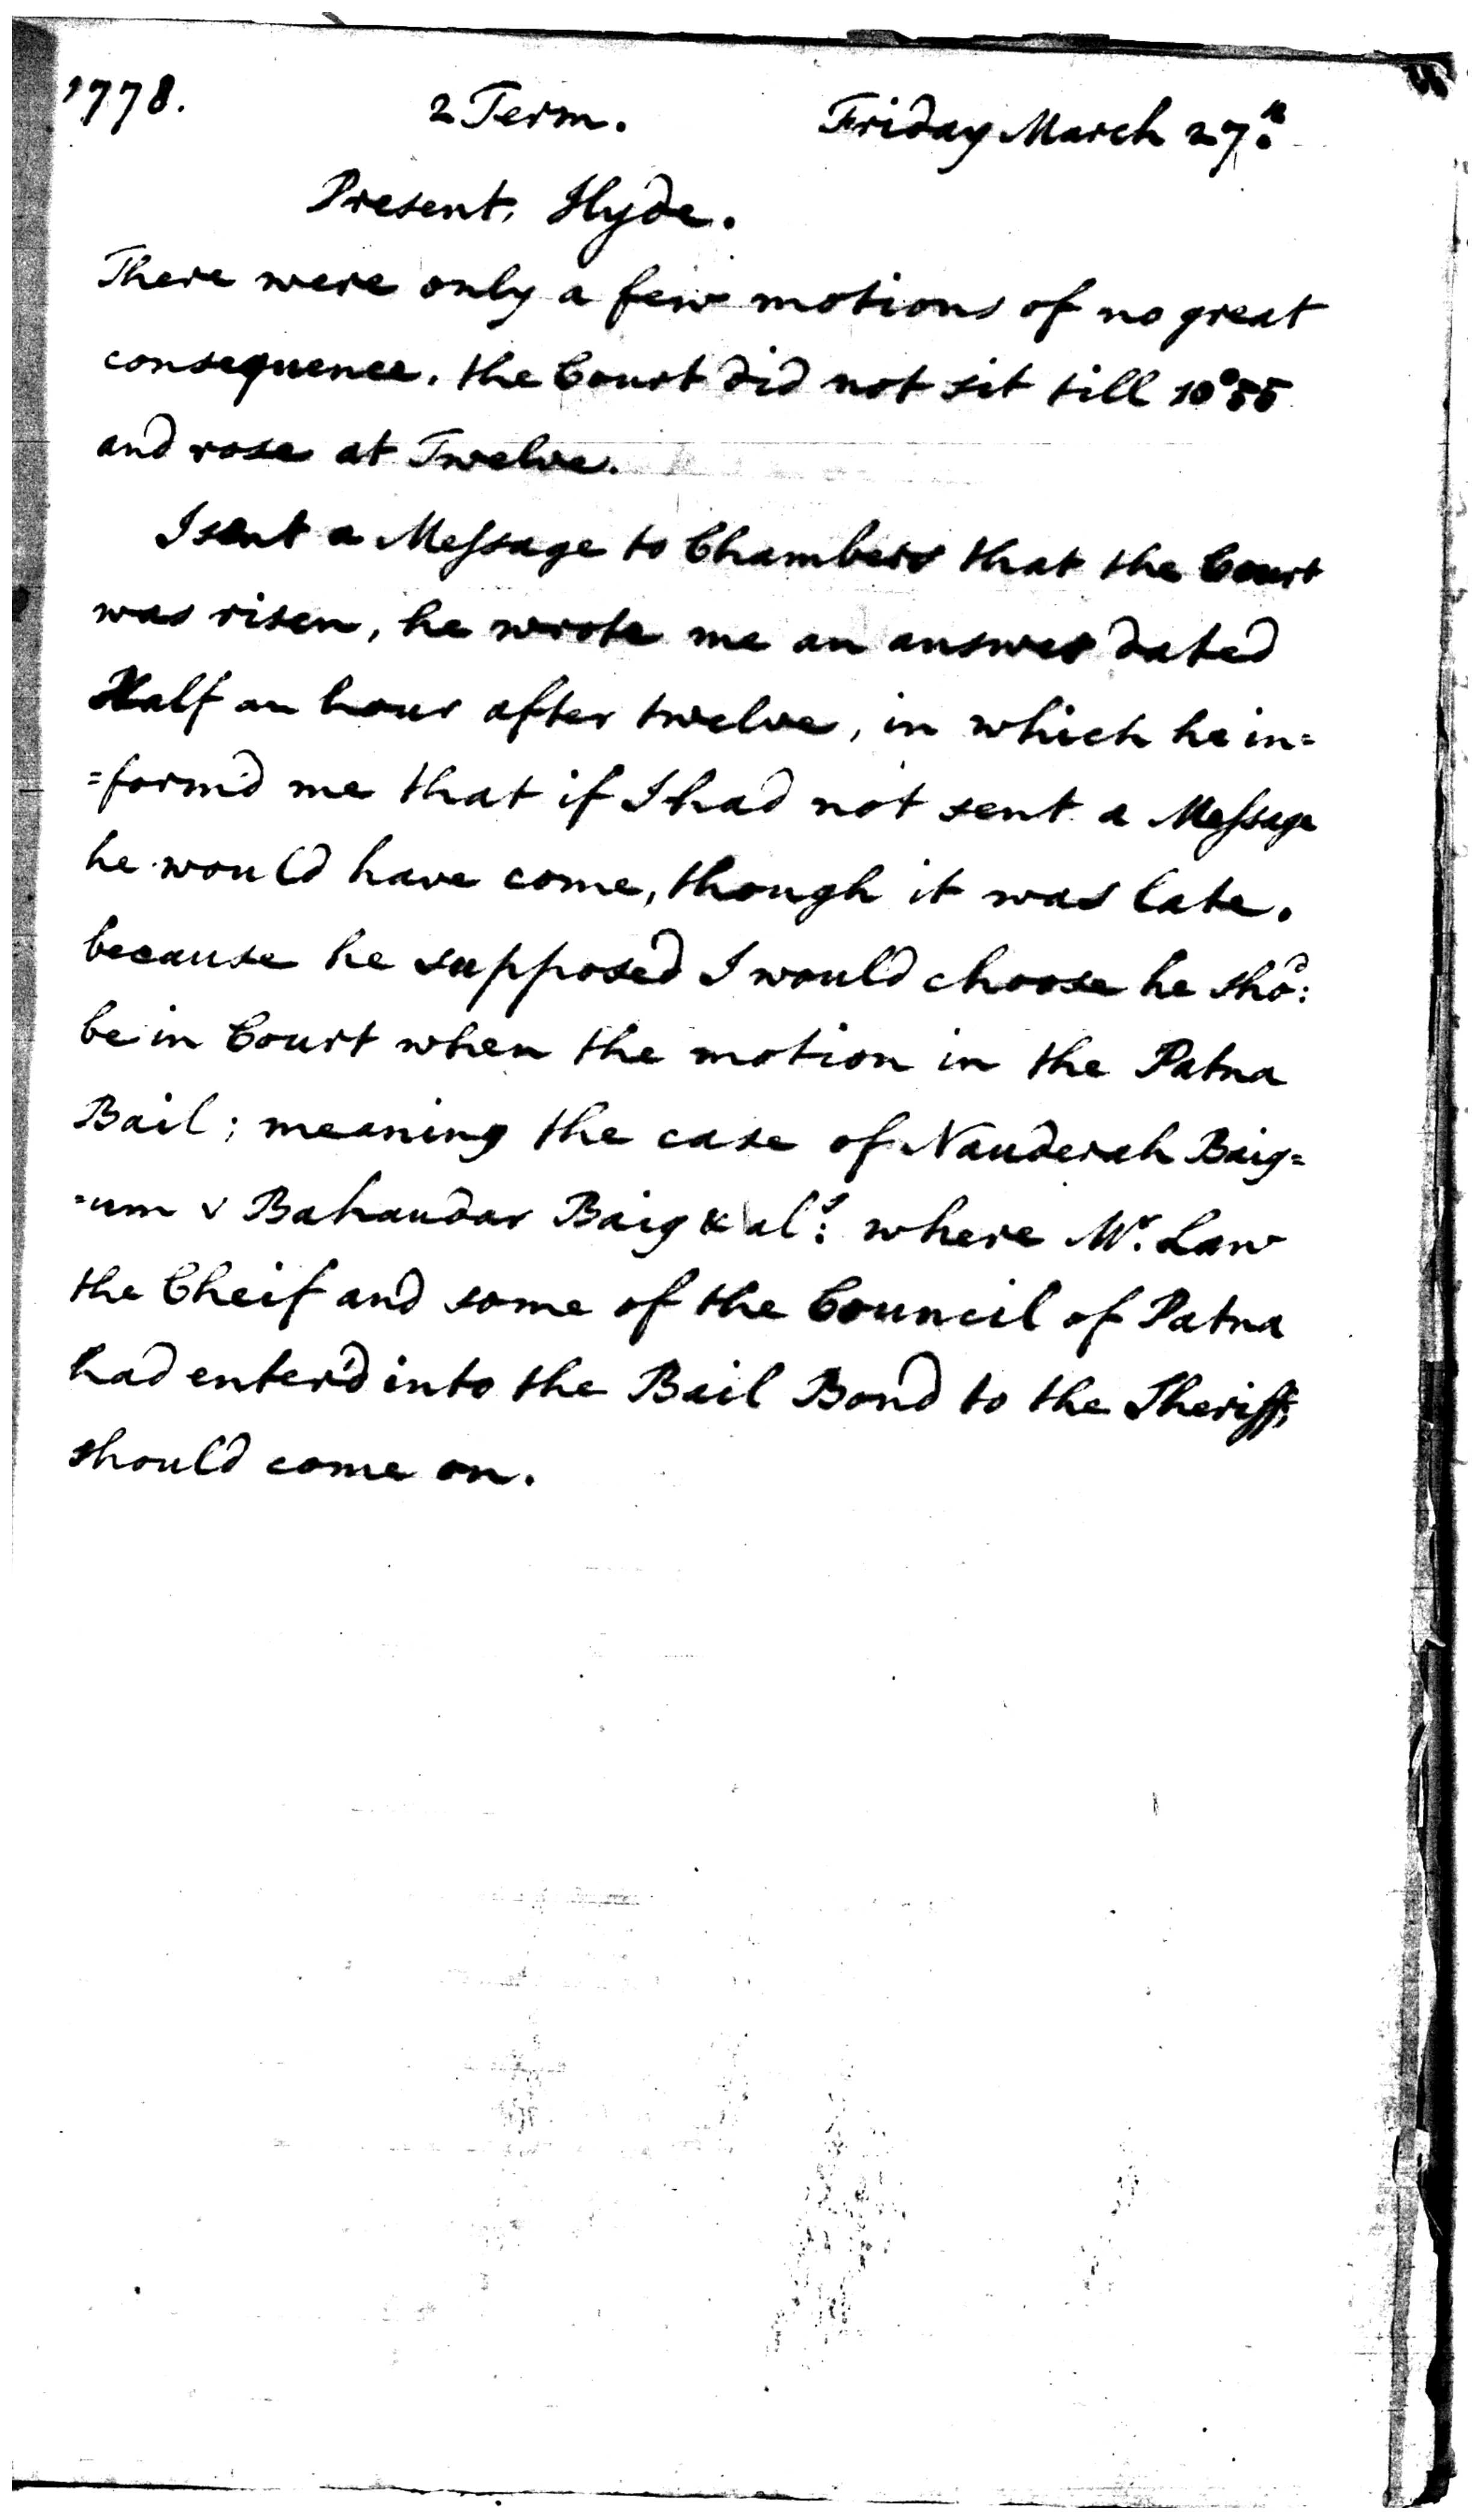 1778. 2 Term. Friday March 27.th
Present, Hyde.
There were only a few motions of no great
consequence, the Court did not sit till 10°55
and rose at Twelve.
I sent a Message to Chambers that the Court
was risen, he wrote me an answer dated
Half an hour after twelve, in which he in=
=form'd me that if I had not sent a Message
he would have come, though it was late,
because he supposed I would choose he sho.d:
be in Court when the motion in the Patna
Bail; meaning the case of Nauderah Baig=
=um v Bahaudar Baig & al.s: where Mr. Law
the Cheif and some of the Council of Patna
had enter'd into the Bail Bond to the Sheriff,
should come on.